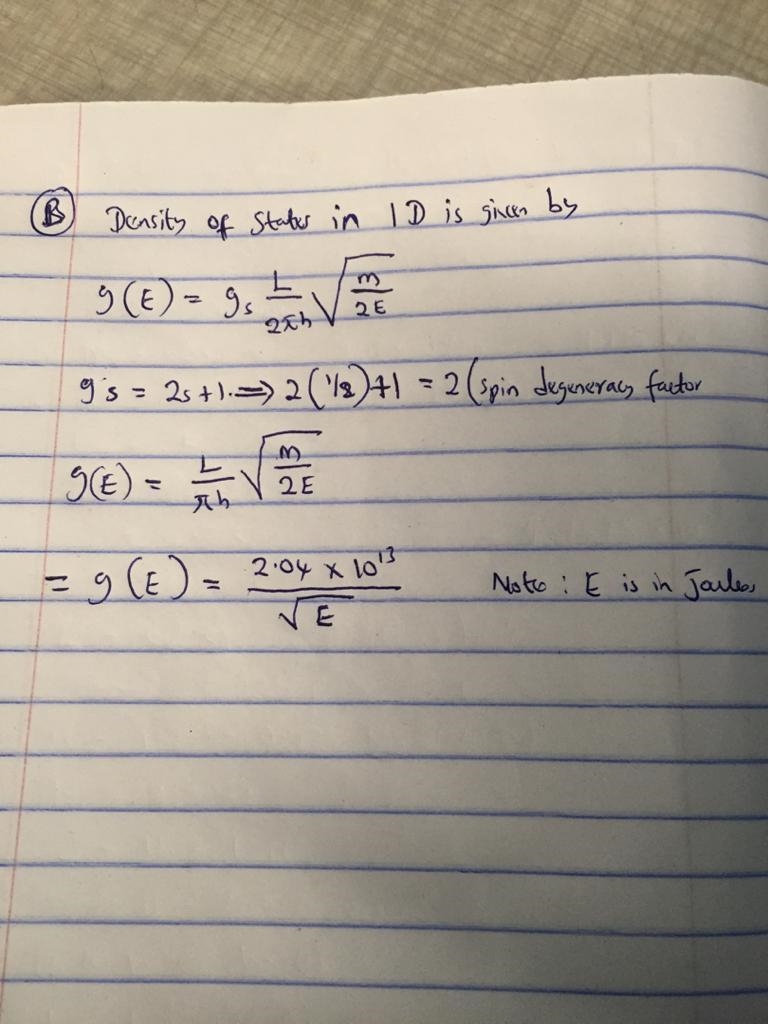 B Density of States in 1D is given by
g(E) = gs L/2πh √(m/2E)
g's = 2s+1. ⟹ 2(1/2)+1 = 2 (spin degeneracy factor
g(E) = L/πh √(m/2E)
= g(E) = 2.04 × 10^13/√E Note: E is in Joules